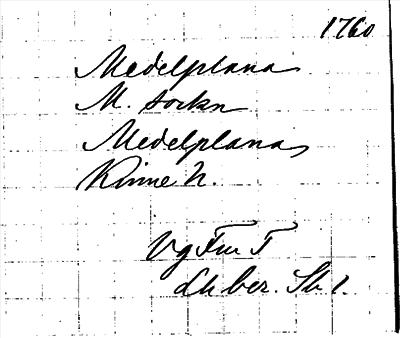 1760
Medelplana
M. sockn
Medelplana
Kinne h.
Vg Fm T
Lh ber. Sh 1.